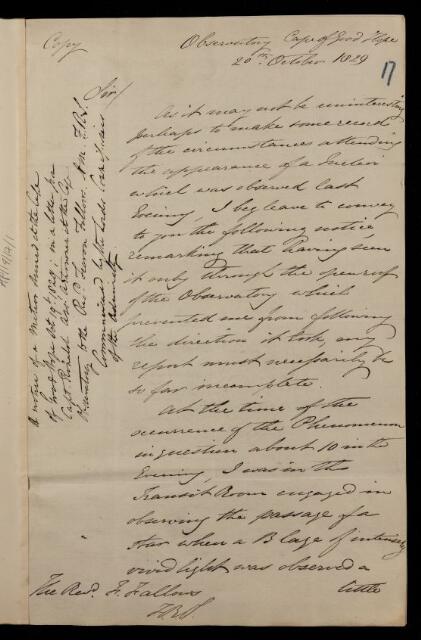 Copy
Observatory Cape of Good Hope
20th October 1829
17
Sir/
As it may not be uninteresting
perhaps to make some record
of the circumstances attending
the appearance of a Meteor
which was observed last
Evening, I beg leave to convey
to you the following notice
remarking that having seen
it only through the
of the Observatory which
prevented me from following
the direction it took, any
report must necessarily be
so far incomplete.
At the time of the
occurrence of the Phenomenon
in question about 10 in the
Evening, I was in the
Transit Room engaged in
observing the passage of a
Star when a Blage of intensely
vivid light was observed a
little
The Revd. F. Fallows
F.R.S.
A notice of a Meteor seen at the Cape
of Good Hope Oct 19th 1829; in a letter from
Capt Ronald Asst Astronomer at the Cape
Observatory to the Revd Fearon Fallows M.A. F.R.S.
Communicated by the Lords Commissioners
of the Admiralty